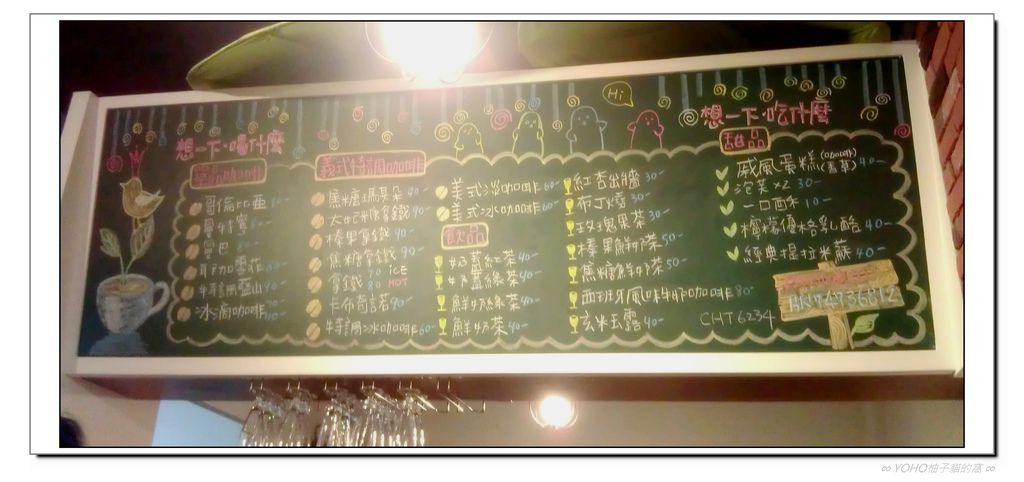 Hi
想一下·喝什麼
單品咖啡
哥倫比亞 80-
曼特寧 80-
曼巴 80-
耶加雪菲 80-
特調藍山 90-
冰滴咖啡 110-
義式特調咖啡
焦糖瑪其朵 90-
太妃糖拿鐵 90-
榛果拿鐵 90-
焦糖拿鐵 90-
拿鐵 70 ICE
80 HOT
卡布奇諾 90-
特調冰咖啡 60-
美式淡咖啡 60-
美式冰咖啡 60-
飲品
奶蓋紅茶 40-
奶蓋綠茶 40-
鮮奶綠茶 40-
鮮奶茶 40-
紅杏出牆 30-
布丁燒 30-
玫瑰果茶 30
榛果鮮奶茶 50-
焦糖鮮奶茶 50-
西班牙風味牛奶咖啡 80-
玄米玉露 40-
想一下·吃什麼
甜品
戚風蛋糕 (咖啡) 40-
(薰草)
泡芙x2 30-
一口西米 10-
檸檬優格乳酪 40-
經典提拉米蘇 40-
CHT6234
∞ YOHO柚子貓的窩 ∞